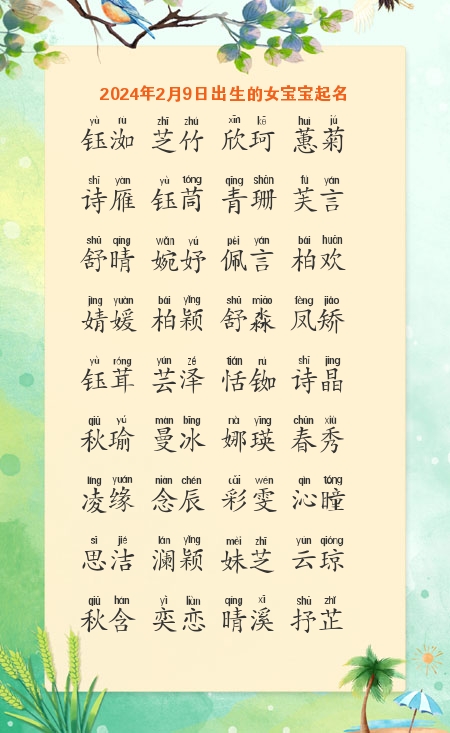 2024年2月9日出生的女宝宝起名
yù rù zhī zhú xīn kē huì jú
钰洳 芝竹 欣珂 蕙菊
shī yàn yù tóng qīng shān fú yán
诗雁 钰茼 青珊 芙言
shū qíng wǎn yú pèi yán bái huān
舒晴 婉妤 佩言 柏欢
jìng yuàn bái yǐng shū miǎo fèng jiǎo
婧媛 柏颖 舒淼 凤矫
yù róng yún zé tián rú shī jīng
钰茸 芸泽 恬铷 诗晶
qiū yú màn bīng nà yīng chūn xiù
秋瑜 曼冰 娜瑛 春秀
líng yuán niàn chén cǎi wén qìn tóng
凌缘 念辰 彩雯 沁瞳
sī jié lán yǐng mèi zhī yún qióng
思洁 澜颖 妹芝 云琼
qiū hán yì liàn qíng xī shū zhǐ
秋含 奕恋 晴溪 抒芷